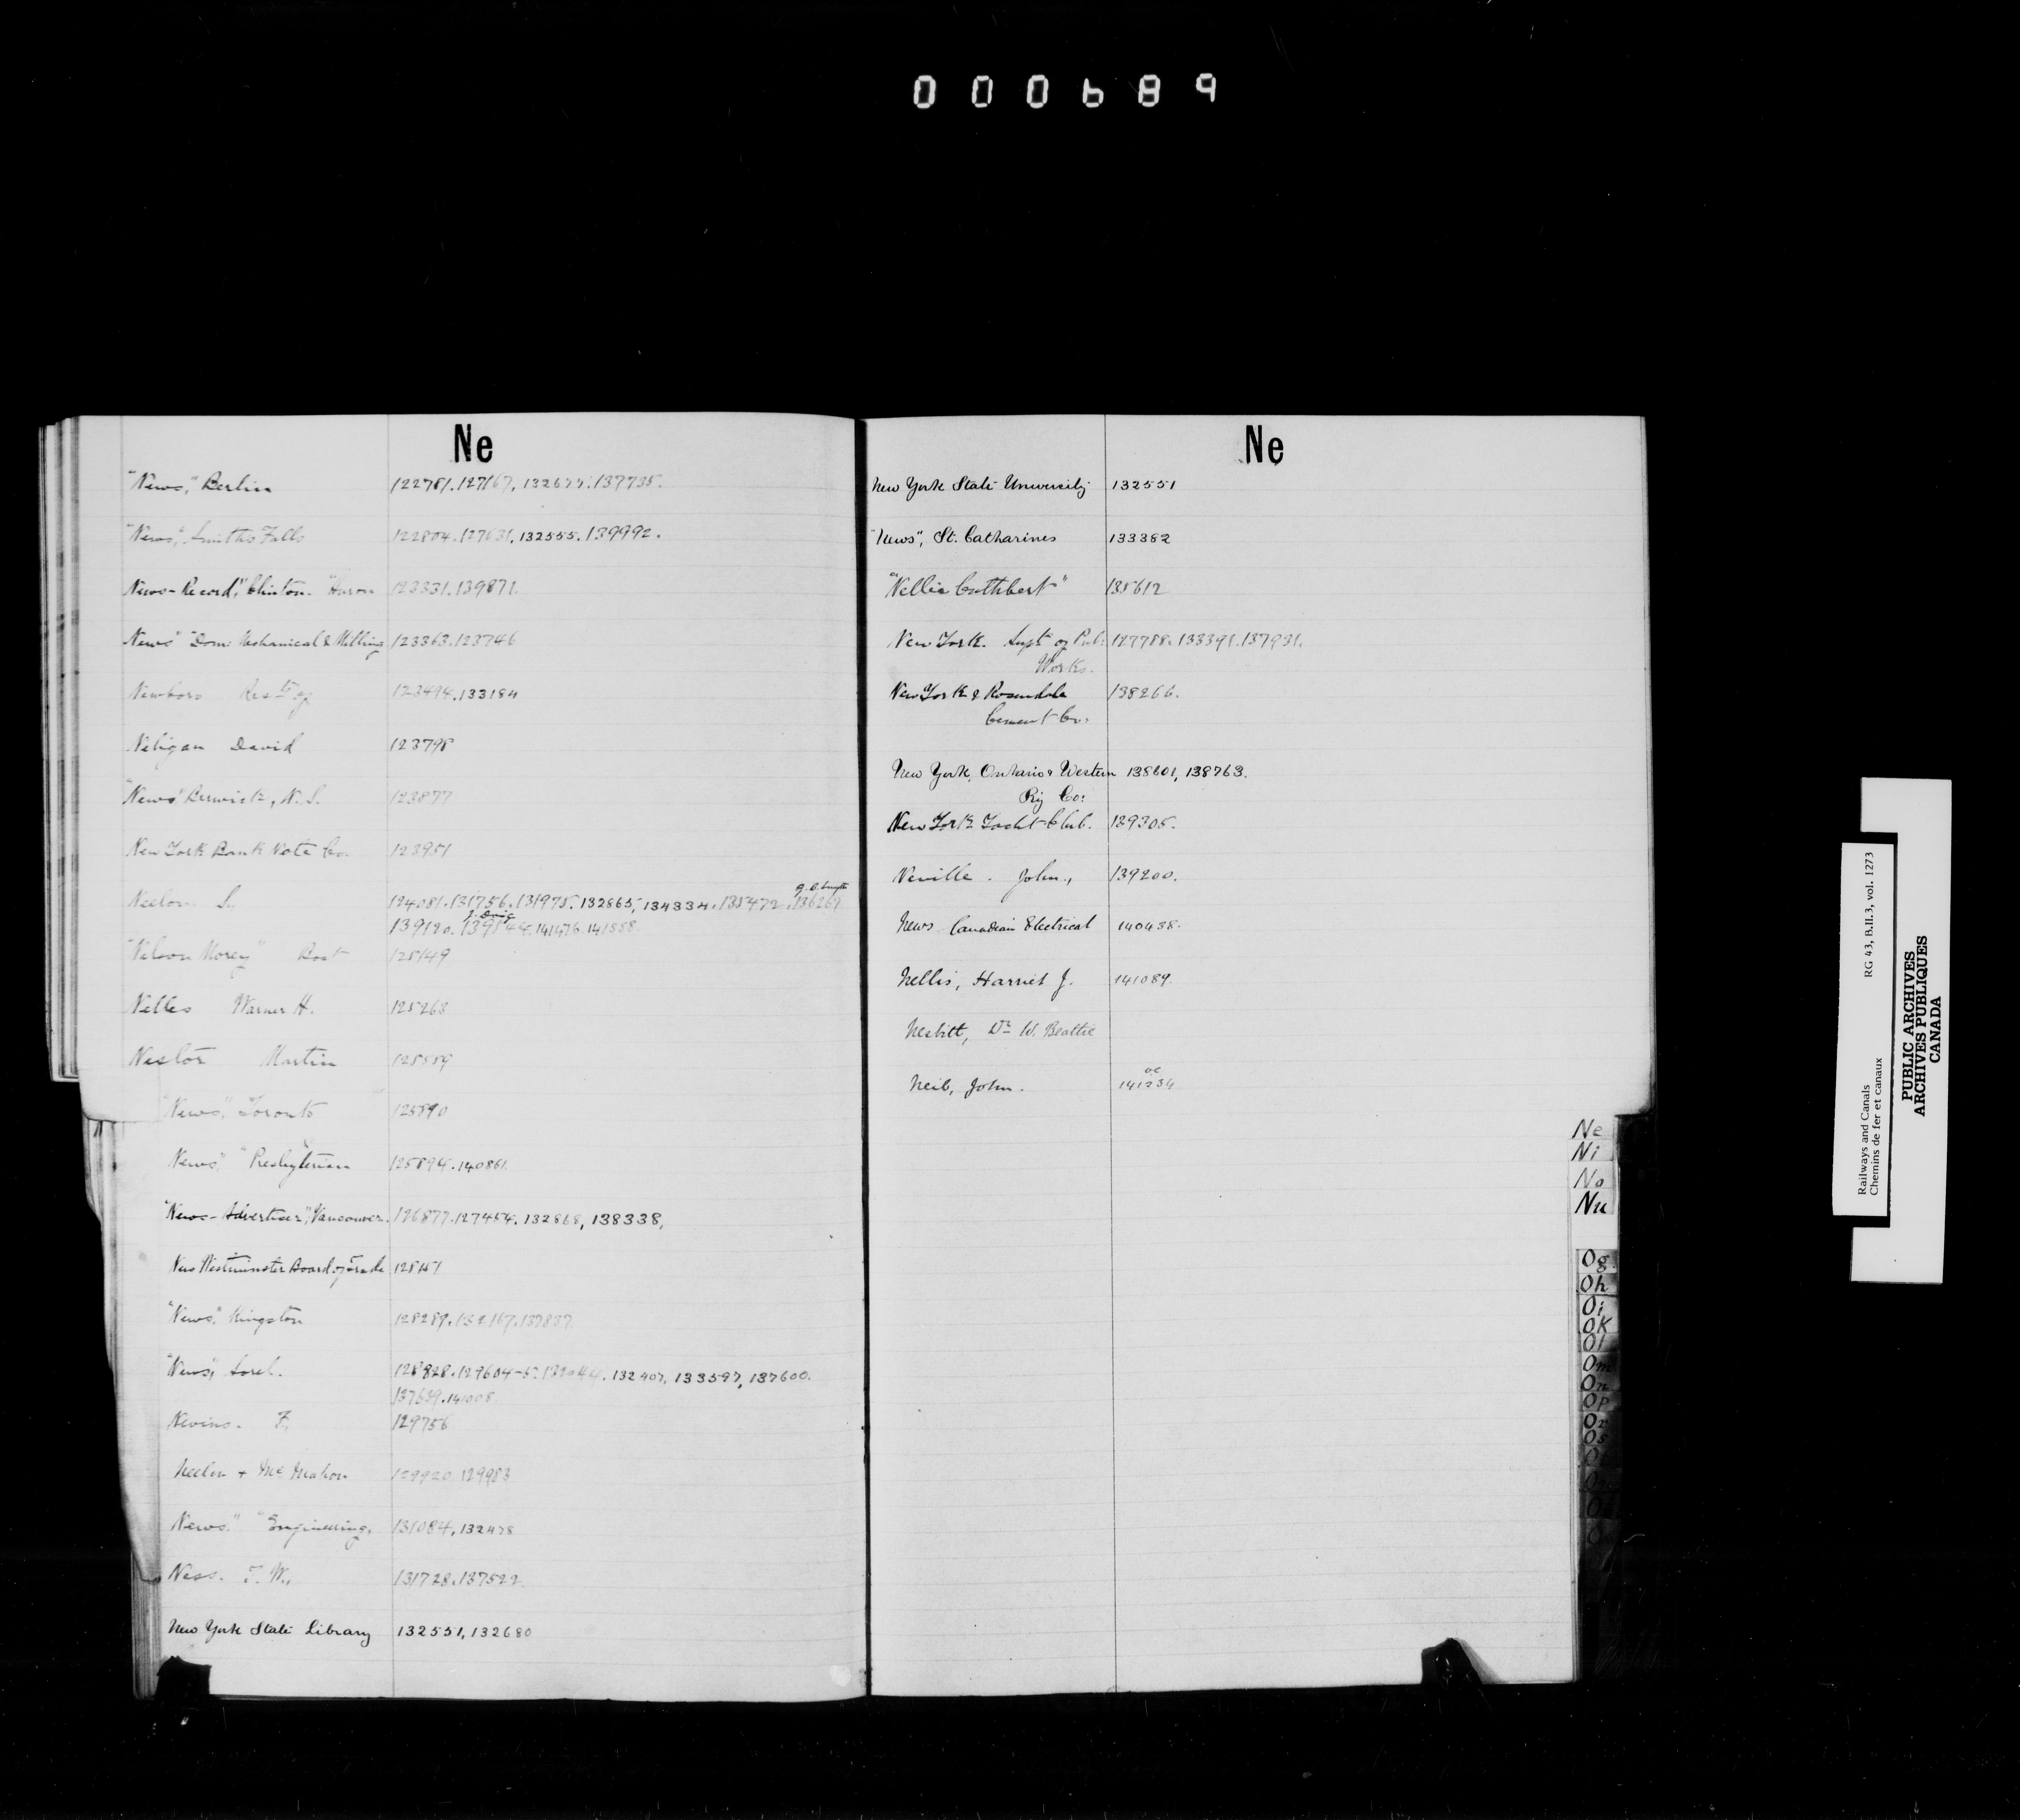 000689
Ne
"News," Berlin 122781.127167, 132677.137735.
"News", Smiths Falls 122804.127631.132555.139992.
News-Record," Clinton. "Huron 123331.139871.
News" "Dom: Mechanical & Milling 123363.123746
Newboro Resdts of 123494.133184
Neligan David 123798
"News" Berwick, N.S. 123877
New York Bank Note Co. 123951
G.C. Smyth
Neelon S. 124081.131756.131975.132865, 134334.135472.136267
J. Doig
139120. 139544.141476.141888
"Nelson Morey" Boat 125149
Nelles Warner H. 125268
Nestor Martin 125559
"News", Toronto 125890
News," "Presbyterian 125894.140861.
"News-Advertiser", Vancouver. 126877.127454.132868, 138338,
New Westminster Board of Trade 128151
"News," Kingston 128289.132167.137837
"News," Sorel. 128928.129604-5. 132407, 133597, 137600.
137639.141008
Nevins. F. 129756
Neelon + McMahon 129920.129983
News." "Engineering, 131084, 132478
Ness. T.W., 131728.137522.
New York State Library 132551, 132680
Ne
New York State University 132551
"News", St. Catharines 133382
"Nellie Cuthbert" 135612
New York. Supt of Pub: 127788.133391.137931.
Works.
New York & Rosendale 138266.
Cement Co.
New York, Ontario & Western 138601, 138763.
Ry Co:
New York Yacht Club. 139305.
Neville. John., 139200.
News Canadian Electrical 140438.
Nellis, Harriet J. 141089.
Nesbitt, Dr W. Beattie
oc
Neil, John. 141234
Ne
Ni
No
Nu
Og
Oh
Oi
OK
Ol
Om
On
Op
Or
Os
Railways and Canals RG 43, B.II.3, vol. 1273
Chemins de fer et canaux
PUBLIC ARCHIVES
ARCHIVES PUBLIQUES
CANADA